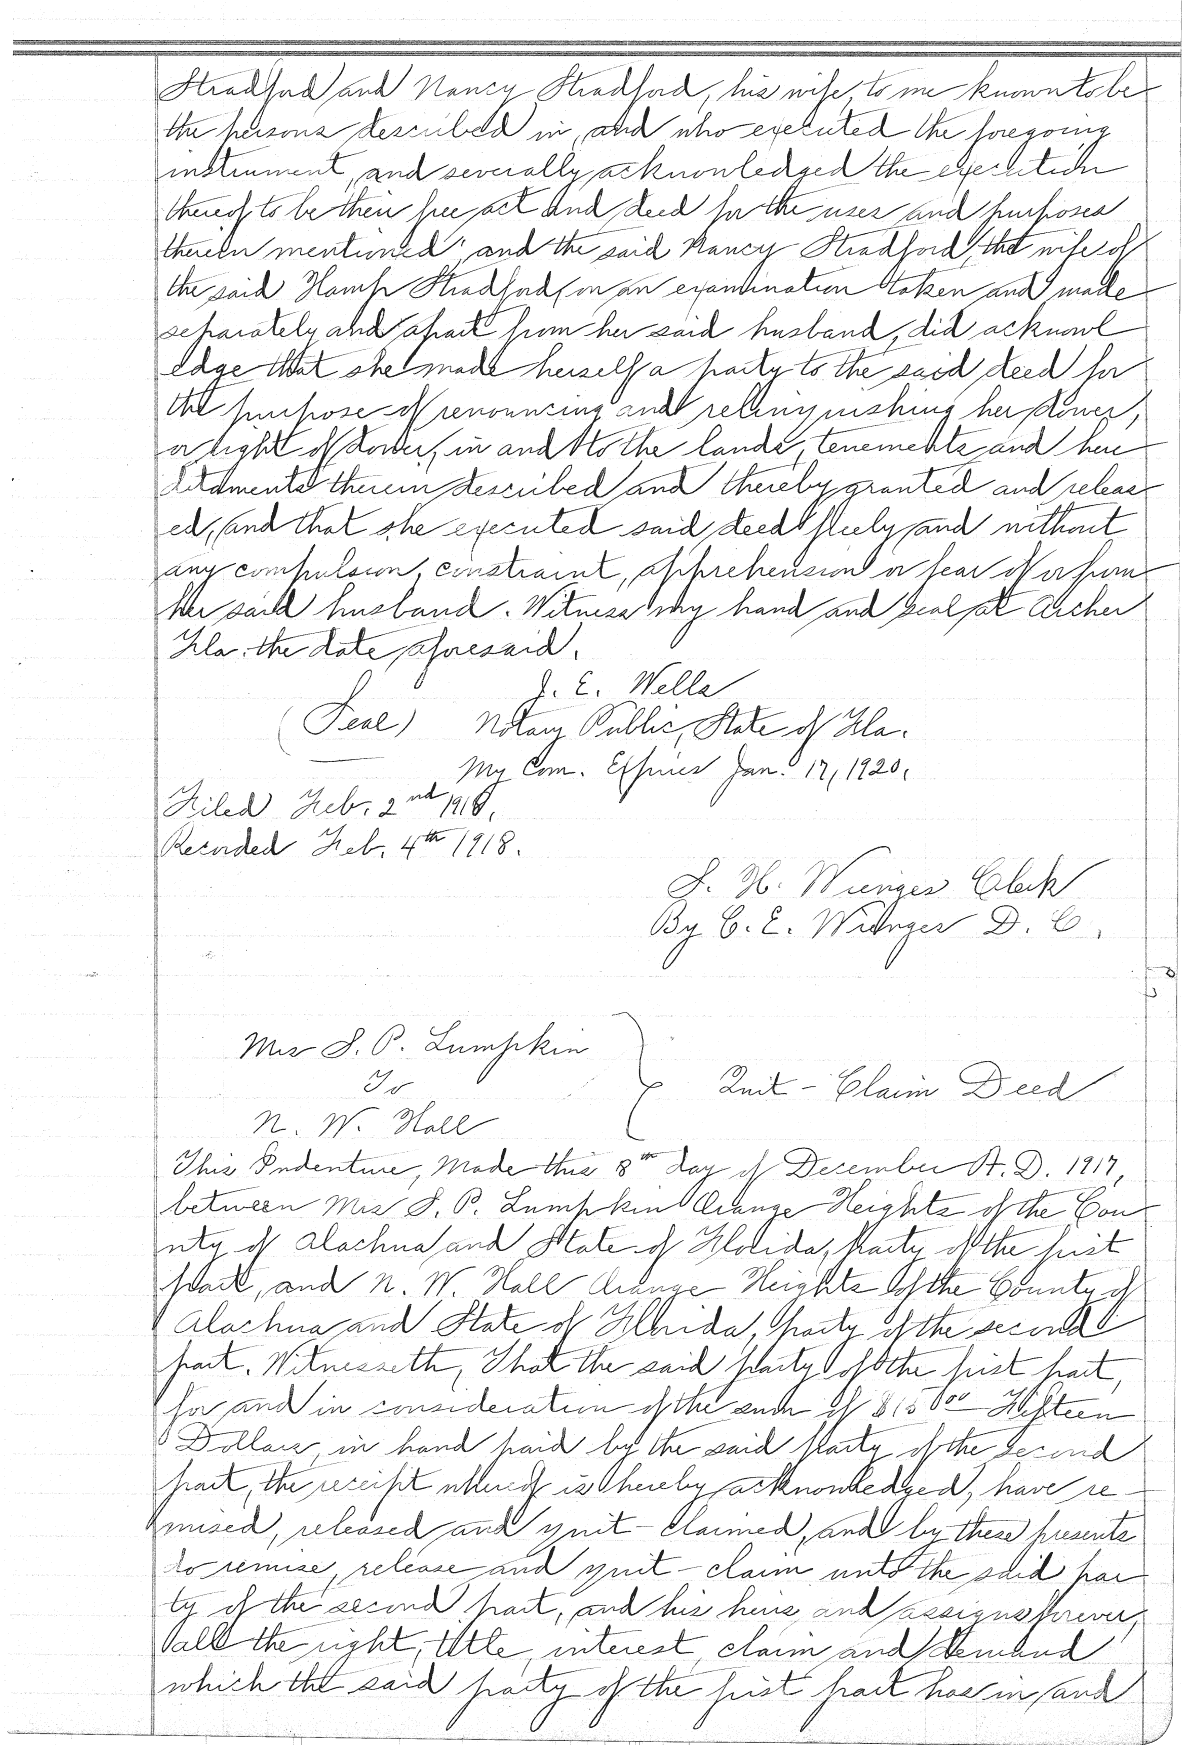 Stradford and Nancy Stradford, his wife, to me known to be
the persons described in, and who executed the foregoing
instrument, and severally acknowledged the execution
thereof to be their free act and deed for the uses and purposes
therein mentioned; and the said Nancy Stradford, the wife of
the said Hamp Stradford, on an examination taken and made
separately and apart from her said husband, did acknowl
edge that she made herself a party to the said deed for
the purpose of renouncing and relinquishing her dower,
or right of dower, in and to the lands, tenements and here
ditaments therein described and thereby granted and releas
ed, and that she executed said deed freely and without
any compulsion, constraint, apprehension or fear of or from
her said husband. Witness my hand and seal at Archer
Fla. the date aforesaid.
J. E. Wells
(Seal) Notary Public, State of Fla.
My Com. Expires Jan. 17, 1920.
Filed Feb. 2nd 1918.
Recorded Feb. 4th 1918.
S. H. Wienges Clerk
By C. E. Wienges D. C.
Mrs S. P. Lumpkin
To
Quit-Claim Deed
N. W. Hall
This Indenture, Made this 8th day of December A. D. 1917,
between Mrs S. P. Lumpkin Orange Heights of the Cou
nty of Alachua and State of Florida, party of the first
part, and N. W. Hall Orange Heights of the County of
Alachua and State of Florida, party of the second
part. Witnesseth, That the said party of the first part,
for and in consideration of the sum of $15.00 Fifteen
Dollars, in hand paid by the said party of the second
part, the receipt whereof is hereby acknowledged, have re-
mised, released and quit-claimed, and by these presents
do remise, release and quit-claim unto the said par
ty of the second part, and his heirs and assigns forever,
all the right, title, interest, claim and demand
which the said party of the first part has in and